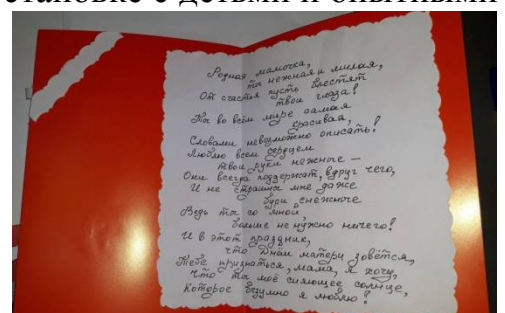 становке с детьми и опытными
Родная мамочка,
ты нежная и милая,
От счастья пусть блестят
твои глаза!
Ты во всём мире самая
красивая,
Словами невозможно описать!
Люблю всем сердцем
твои руки нежные –
Они всегда поддержат, вдруг чего,
И не страшны мне даже
бури снежные
Ведь ты со мной,
больше не нужно ничего!
И в этот праздник,
что Днём матери зовётся,
Тебе признаться, мама, я хочу,
Что ты моё сияющее солнце,
Которое безумно я люблю!